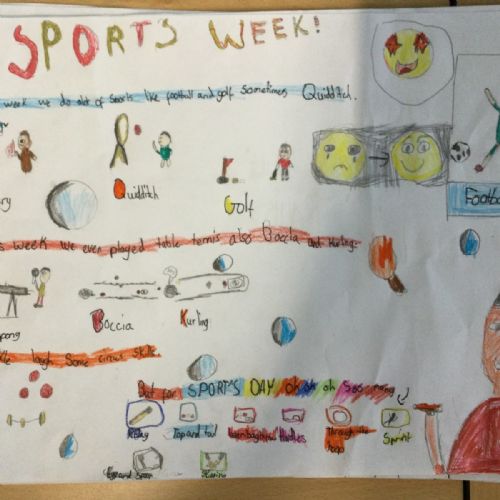 SPORTS WEEK!
week we do alot of sports like football and golf sometimes Quidditch.
Quidditch
Golf
Footba
s week we even played table tennis also Boccia and Kurling.
pong
Boccia
Kurling
laugh some circus skills.
But for SPORTS DAY oh oh oh soo many
Relay
Hurdles
Through the hoop
Sprint
Egg and spoon